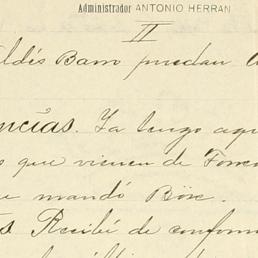 Administrador ANTONIO HERRAN
II
aldés Barro puedan
ncias. Ya luego aqu
s que vienen de
e mandó Böse.
s Recibí de conform